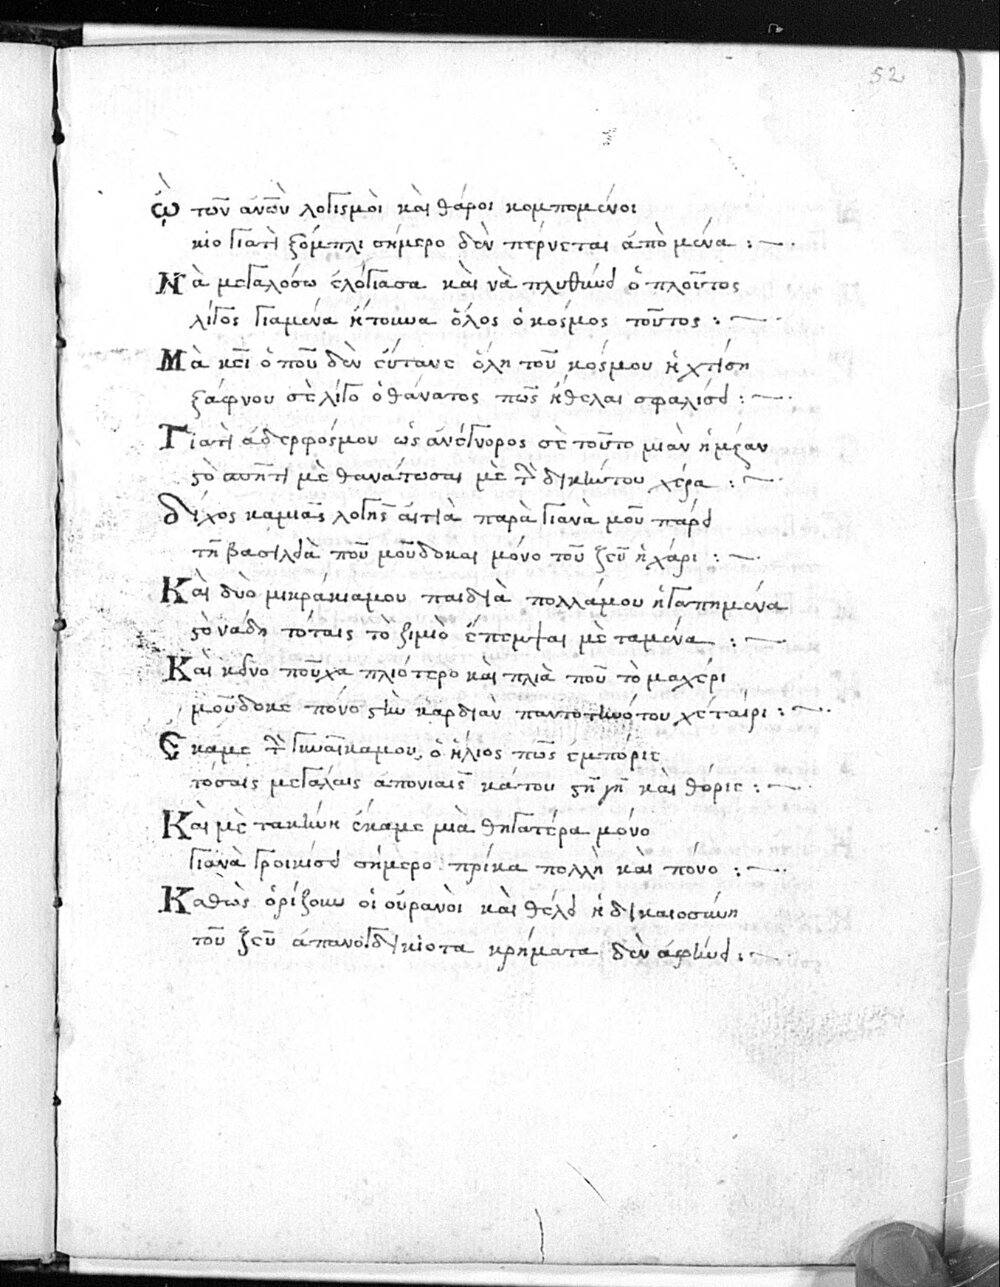 52
ὦ τῶν ἀνῶν λογισμὸι καὶ θάροι κομπομένοι
κιο γιατὶ ξόμπλι σήμερο δὲν πέρνεται ἀπὸ μένα :~
Νὰ μεγαλόσω ἐλόγιασα καὶ νὰ πλυθήνει ὁ πλοῦτος
λίγος γιαμένα ἤτονινα ὅλος ὁ κόσμος τοῦτος :~
Μὰ κεῖ ὁποῦ δὲν εὔτανε ὅλη τοῦ κόσμου ἡ χτίση
ξάφνου σὲ λίγο ὁ θάνατος πῶς ἤθελαι σφαλίσει :~
Γιατὶ ἀδερφόσμου ὡς ἀνέγνορος σὲ τοῦτο μιὰν ἡμέραν
στὸ μὲ θανάτωσαι μὲ τὴ δικήντου χέρα :~
δίχος καμιᾶς λογῆς αἰτιὰ παρὰ γιανὰ μοῦ πάρει
τὴ βασιλειὰ ποῦ μοῦδοκαι μόνο τοῦ ζεῦ ἡ χάρι :~
Καὶ δυὸ μικράκιαμου παιδιὰ πολλάμου ἠγαπημένα
στὸν ἅδη τόταις τὸ ζιμιὸ ἔπεμψαι με ταμένα :~
Καὶ κεῖνο ποῦχα πλιότερο καὶ πλιὰ ποῦ τὸ μαχέρι
μοῦδοκε πόνο στὴν καρδιὰν παντοτινό του χέταίρι :~
Ἔκαμε τὴ γυναῖκαμου, ὁ ἥλιος πῶς ἐμπόριε
τόσαις μεγάλαις ἀπονιαὶς κάτου στὴ γῆ καὶ θόριε :~
Καὶ μὲ τακείνη ἔκαμε μιὰ θηγατέρα μόνο
γιανὰ γροικίσει σήμερο πρίκα πολλὴ καὶ πόνο :~
Καθὼς ὁρίζουν οἱ οὐρανοὶ καὶ θέλει ἡ δικαιοσύνη
τοῦ ζεῦ ἀπανογδίκιοτα κρήματα δὲν ἀφίνει :~